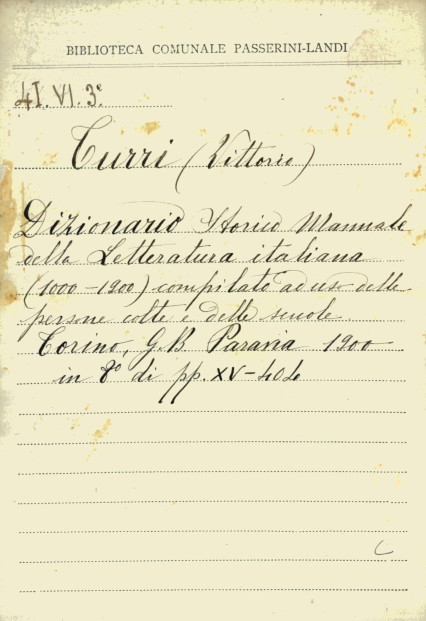 BIBLIOTECA COMUNALE PASSERINI-LANDI
4I. VI. 3e
Turri (Vittorio)
Dizionario Storico Manuale
della Letteratura italiana
(1000-1900) compilato ad uso delle
persone colte e delle scuole
Torino, G.B Paravia 1900
in 8° di pp. XV-404